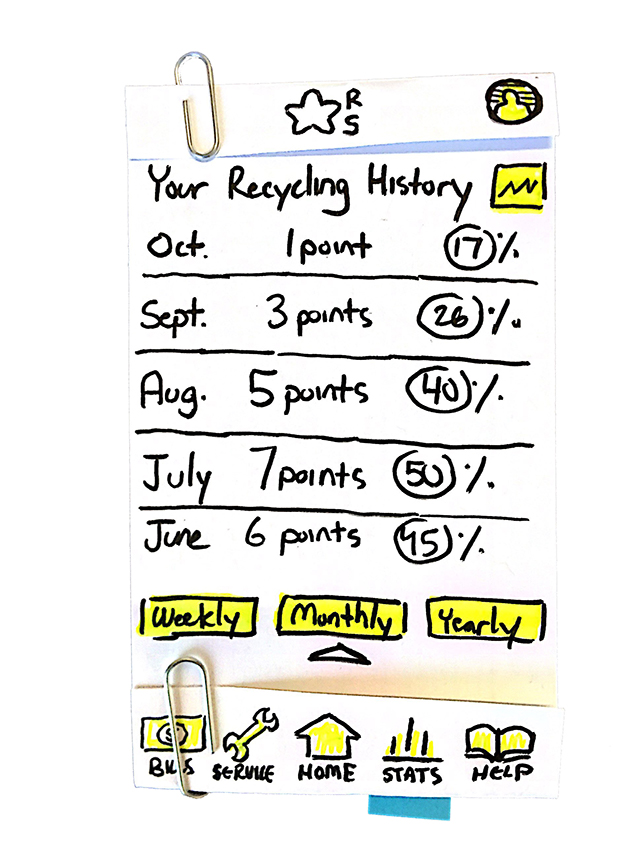 R
S
Your Recycling History
Oct. 1 point 17 %
Sept. 3 points 26 %
Aug. 5 points 40 %
July 7 points 50 %
June 6 points 45 %
Weekly Monthly Yearly
$
BILLS SERVICE HOME STATS HELP